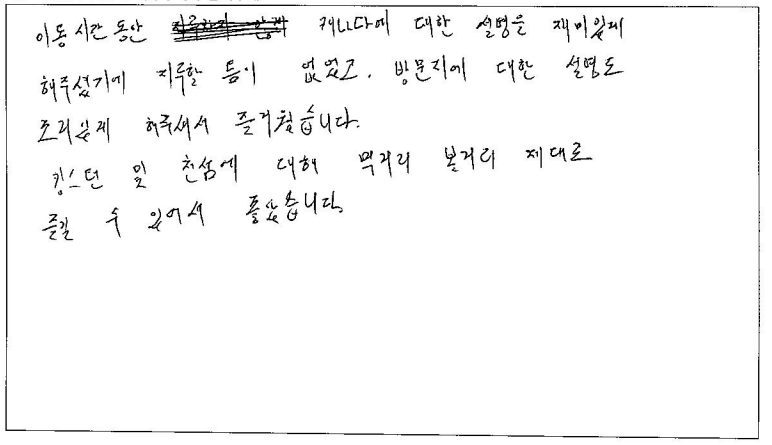 이동 시간 동안 캐나다에 대한 설명을 재미있게
해주셨기에 지루할 틈이 없었고, 방문지에 대한 설명도
조리있게 해주셔서 즐거웠습니다.
킹스턴 및 천섬에 대해 먹거리 볼거리 제대로
즐길 수 있어서 좋았습니다.